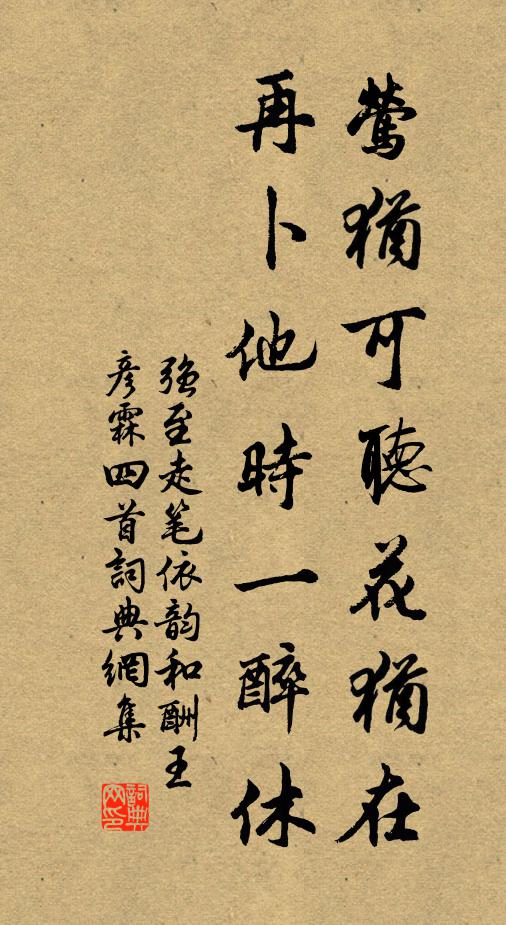 鶯猶可聽花猶在
再卜他時一醉休
强至走笔依韵和酬王
彦霖四首詞典網集
詞典网印